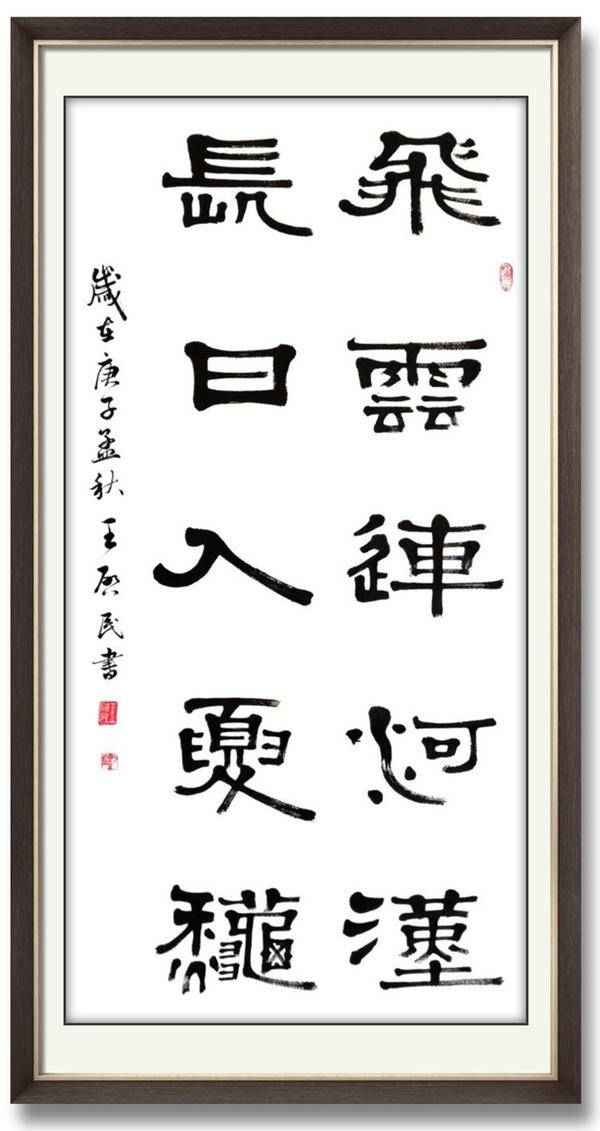 飛雲連河漢
長日入夏龝
歲在庚子孟秋王啟民書